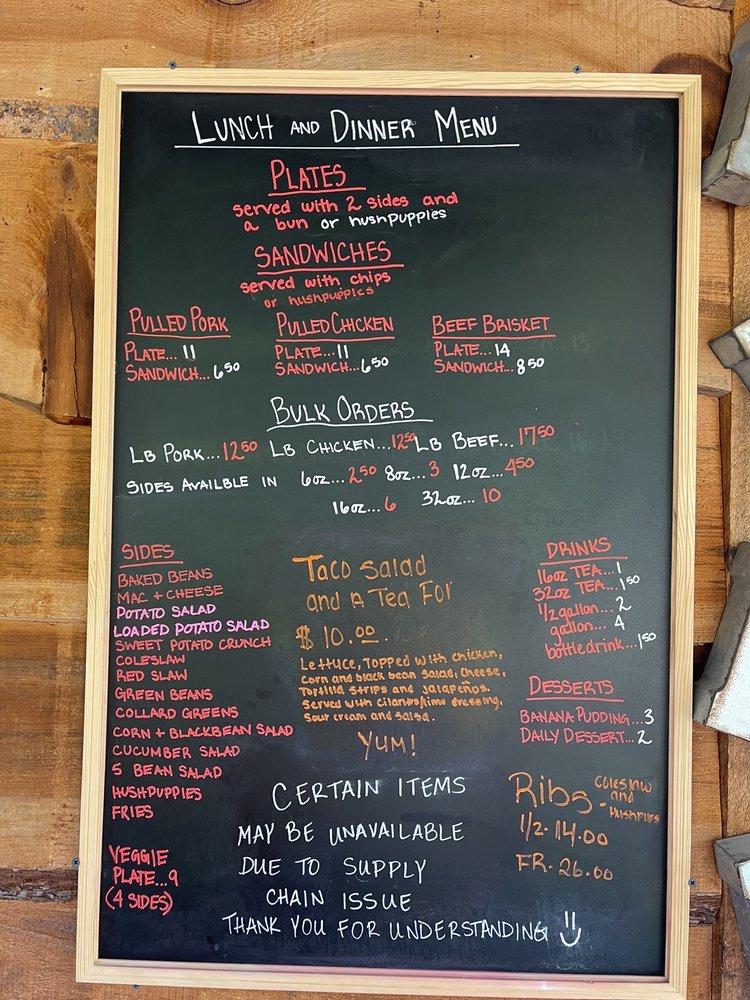 LUNCH AND DINNER MENU
PLATES
served with 2 sides and
a bun or hushpuppies
SANDWICHES
served with chips
or hushpuppies
PULLED PORK
PLATE... 11
SANDWICH... 6.50
PULLED CHICKEN
PLATE... 11
SANDWICH... 6.50
BEEF BRISKET
PLATE... 14
SANDWICH... 8.50
BULK ORDERS
LB PORK... 12.50 LB CHICKEN... 12.50 LB BEEF... 17.50
SIDES AVAILBLE IN 6oz... 2.50 8oz... 3 12oz... 4.50
16oz... 6 32oz... 10
SIDES
BAKED BEANS
MAC + CHEESE
POTATO SALAD
LOADED POTATO SALAD
SWEET POTATO CRUNCH
COLESLAW
RED SLAW
GREEN BEANS
COLLARD GREENS
CORN + BLACKBEAN SALAD
CUCUMBER SALAD
5 BEAN SALAD
HUSHPUPPIES
FRIES
VEGGIE
PLATE... 9
(4 SIDES)
Taco Salad
and A Tea For
$ 10.00.
Lettuce, Topped with chicken,
corn and black bean salad, cheese,
Tortilla strips and jalapeños.
Served with cilantro/lime dressing,
sour cream and salsa.
YUM!
CERTAIN ITEMS
MAY BE UNAVAILABLE
DUE TO SUPPLY
CHAIN ISSUE
THANK YOU FOR UNDERSTANDING
DRINKS
16oz TEA... 1
32oz TEA... 1.50
1/2 gallon... 2
gallon... 4
bottle drink... 1.50
DESSERTS
BANANA PUDDING... 3
DAILY DESSERT... 2
Ribs - Coleslaw
and
Hushpups
1/2. 14.00
FR. 26.00